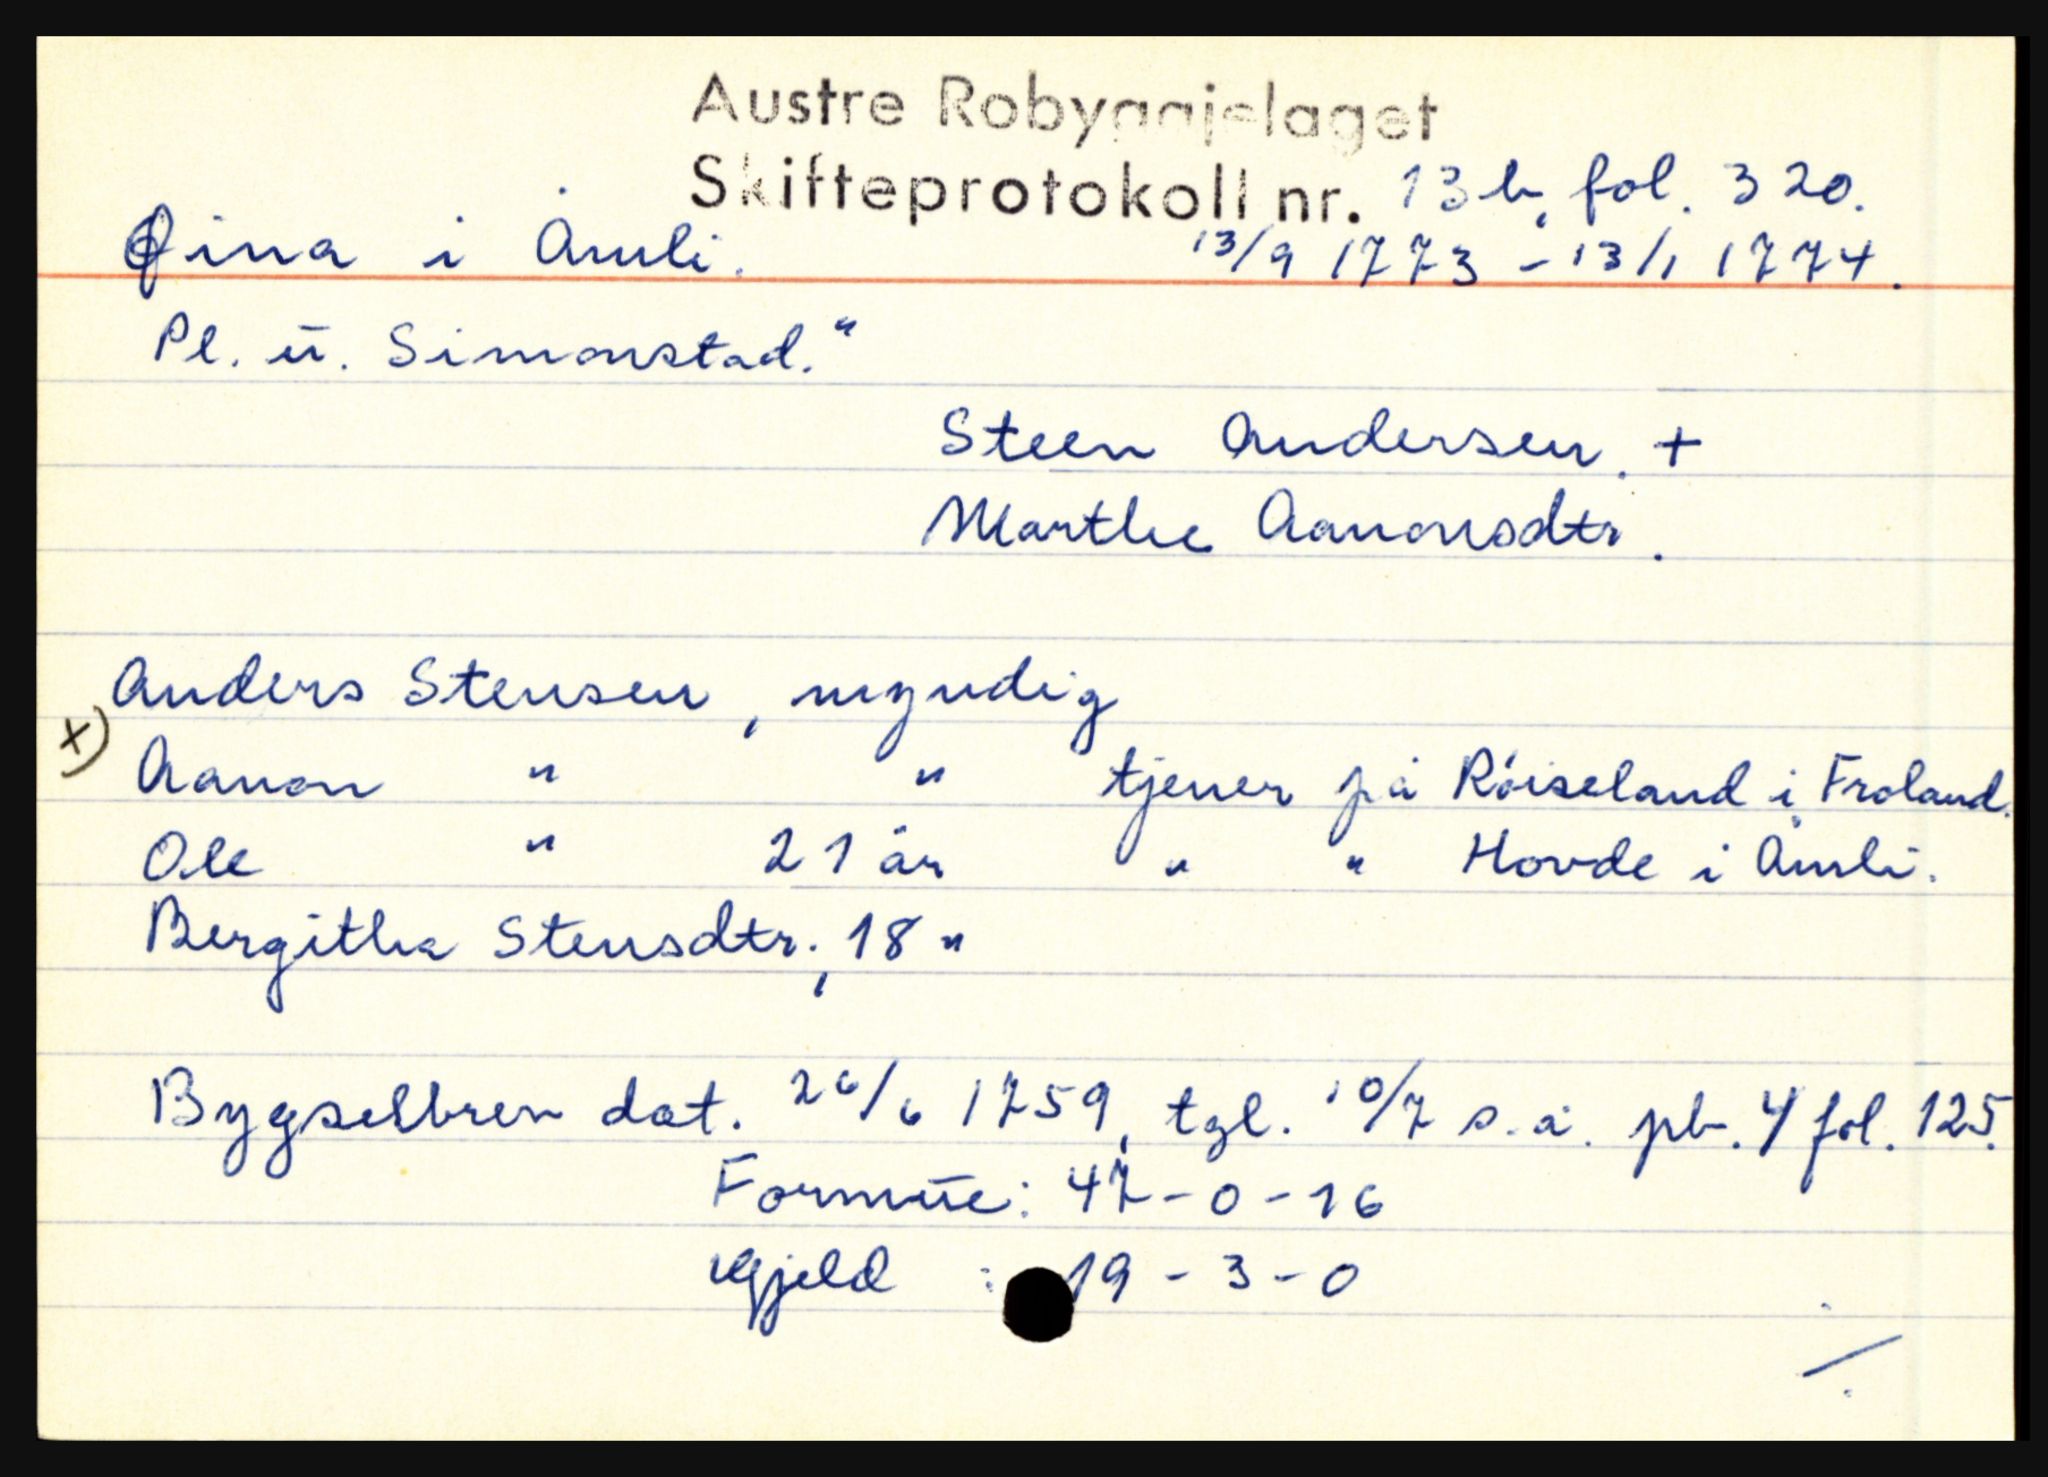 Austre Robyggjelaget
Skifteprotokoll nr. 13 b, fol. 320.
Øina i Åmli. 13/9 1773 - 13/1 1774.
Pl. ū. Simonstad."
Steen Andersen. +
Marthe Aanonsdtr.
Anders Stensen, myndig
x) Aanon " " tjener på Röiseland i Froland.
Ole " 21 år " " Hovde i Åmli.
Bergithe Stensdtr., 18 "
Bygselbrev dat. 26/6 1759, tgl. 10/7 s.å. pb. 4 fol. 125.
Formūe: 47-0-16
Gjeld : 19-3-0